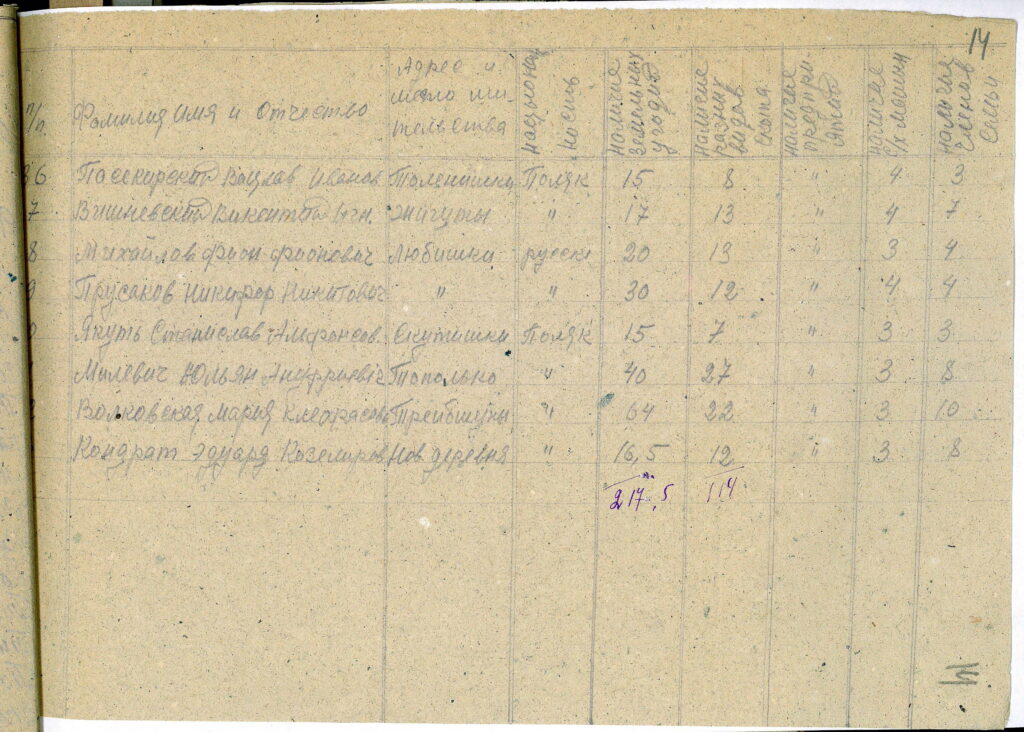 14
п/п Фамилия Имя и Отчество Адрес и место жительства национальность наличие земельных угодий наличие разных видов скота наличие предприятий наличие с/х машин наличие членов семьи
6 Вацлав Иванов Поляк 15 8 " 4 3
7 Вишневский Викентий Игн. " 17 13 " 4 7
8 Михайлов Фион Фионович Любишки русски 20 13 " 3 4
9 Прусаков Никифор Никитович " " 30 12 " 4 4
0 Якуть Станислав Альфонсов. Екутишки Поляк 15 7 " 3 3
Милевич Юльян Тополько " 40 27 " 3 8
2 Волковская Мария " 64 22 " 3 10
Кондрат Эдуард Каземиров Нов деревня " 16,5 12 " 3 8
217,5 114